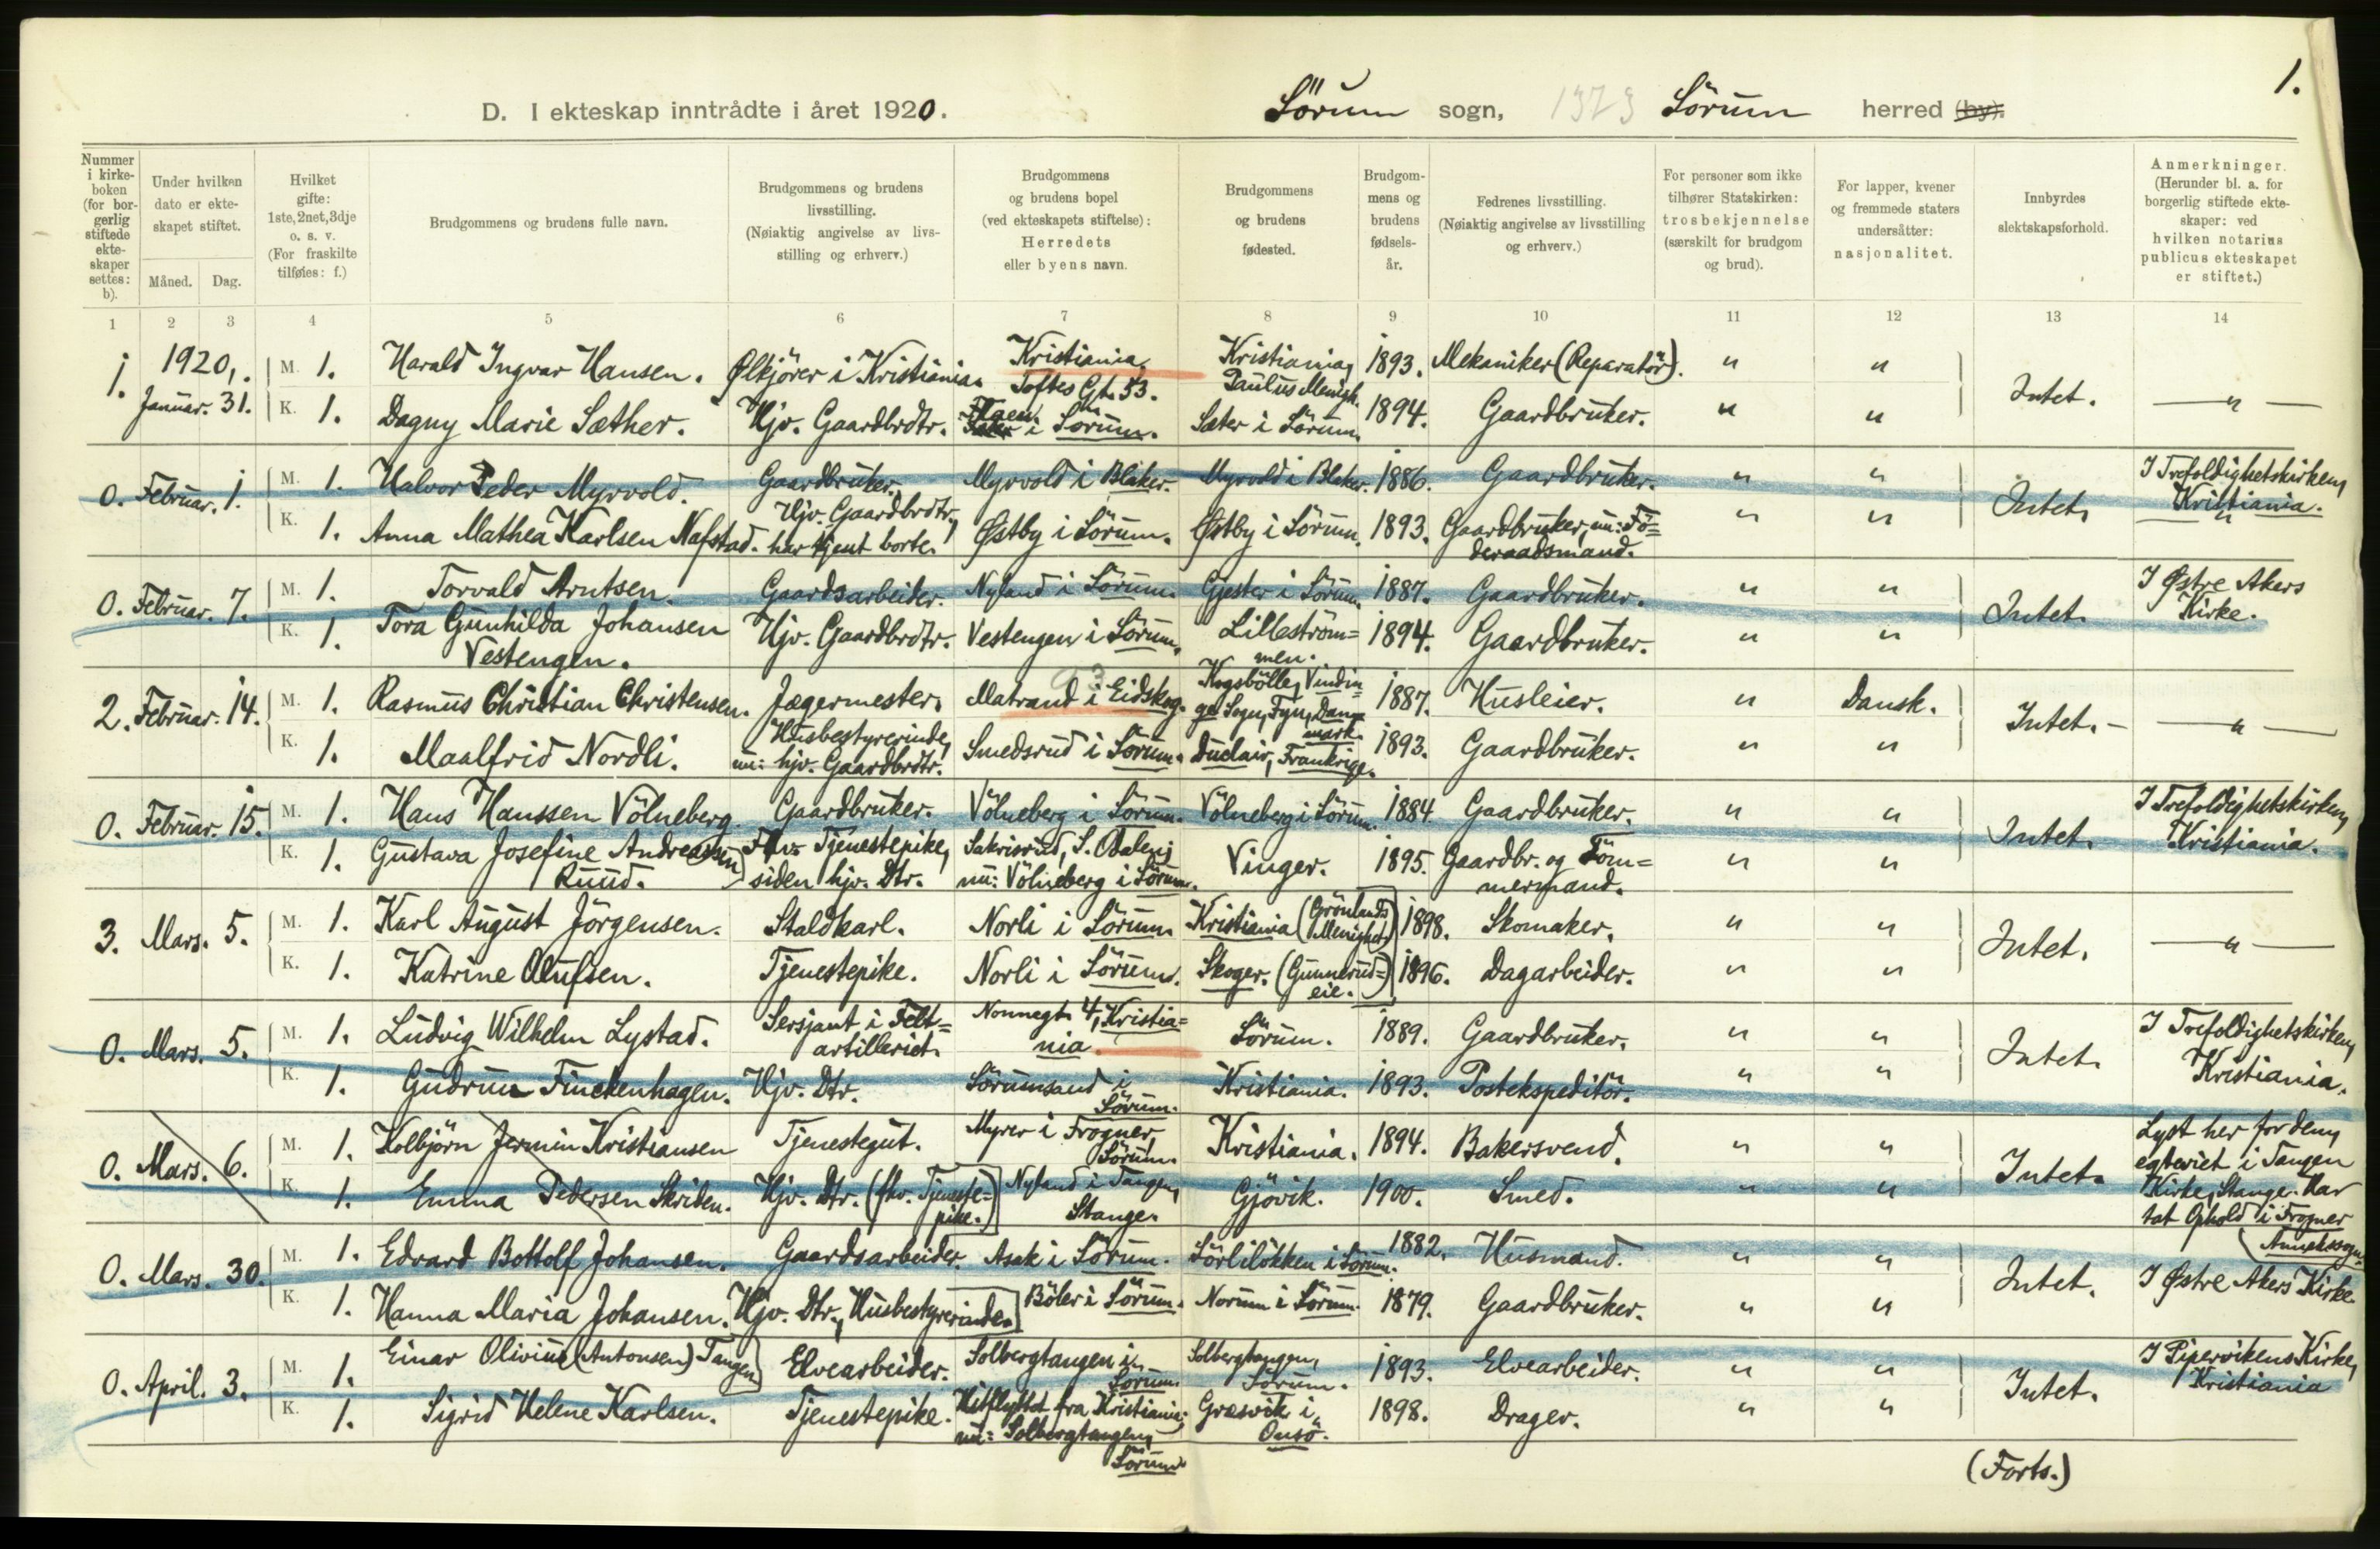 1.
D. I ekteskap inntrådte i året 1920. Sörum sogn, 1373 Sörum herred (by).
Nummer i kirkeboken (for borgerlig stiftede ekteskaper settes: b).
Under hvilken dato er ekteskapet stiftet.
Måned. Dag.
Hvilket gifte: 1ste, 2net, 3dje o. s. v. (For fraskilte tilføies: f.)
Brudgommens og brudens fulle navn.
Brudgommens og brudens livsstilling. (Nøiaktig angivelse av livsstilling og erhverv.)
Brudgommens og brudens bopel (ved ekteskapets stiftelse): Herredets eller byens navn.
Brudgommens og brudens fødested.
Brudgommens og brudens fødselsår.
Fedrenes livsstilling. (Nøiaktig angivelse av livsstilling og erhverv.)
For personer som ikke tilhører Statskirken: trosbekjennelse (særskilt for brudgom og brud).
For lapper, kvener og fremmede staters undersåtter: nasjonalitet.
Innbyrdes slektskapsforhold.
Anmerkninger. (Herunder bl. a. for borgerlig stiftede ekteskaper: ved hvilken notarius publicus ekteskapet er stiftet.)
1 2 3 4 5 6 7 8 9 10 11 12 13 14
1. 1920. Januar. 31.
M. 1. Harald Ingvar Hansen. Ølkjörer i Kristiania. Kristiania. Toftes Gt. 53. Kristiania, Paulus Menigh. 1893. Mekaniker (Reparatör). " "
K. 1. Dagny Marie Sæther. Hjv. Gaardbrdtr. i Sörum. Sæter i Sörum. 1894. Gaardbruker. " " Intet. — " —
0. Februar. 1.
M. 1. Halvor Peder Myrvold. Gaardbruker. Myrvold i Blaker. Myrvold i Blaker. 1886. Gaardbruker. " "
K. 1. Anna Mathea Karlsen Nafstad. Hjv. Gaardbrdtr., har tjent borte. Østby i Sörum. Østby i Sörum. 1893. Gaardbruker, nu: Föderaadsmand. " " Intet. I Trefoldighetskirken, Kristiania. "
0. Februar. 7.
M. 1. Torvald Arntsen. Gaardsarbeider. Nyland i Sörum. Gjester i Sörum. 1887. Gaardbruker. " "
K. 1. Tora Gunhilda Johansen Vestengen. Hjv. Gaardbrdtr. Vestengen i Sörum. Lilleströmmen. 1894. Gaardbruker. " " Intet. I Østre Akers Kirke.
2. Februar. 14.
M. 1. Rasmus Christian Christensen. Jægermester. Matrand i Eidskog. Kogsbölle, Vindinge Sogn, Fyn, Danmark. 1887. Husleier. " Dansk.
K. 1. Maalfrid Nordli. Husbestyrerinde, nu: hjv. Gaardbrdtr. Smedsrud i Sörum. Duclair, Frankrige. 1893. Gaardbruker. " " Intet. — " —
0. Februar. 15.
M. 1. Hans Hanssen Völneberg. Gaardbruker. Völneberg i Sörum. Völneberg i Sörum. 1884. Gaardbruker. " "
K. 1. Gustava Josefine Andreassen Ruud. Tjenestepike, siden hjv. Dtr. Sakrisrud, S. Odalen; nu: Völneberg i Sörum. Vinger. 1895. Gaardbr. og Tömmermand. " " Intet. I Trefoldighetskirken, Kristiania.
3. Mars. 5.
M. 1. Karl August Jörgensen. Staldkarl. Norli i Sörum. Kristiania (Grönlands Menighet) 1898. Skomaker. " "
K. 1. Katrine Olufsen. Tjenestepike. Norli i Sörum. Skoger. (Gunnerud=eie.) 1896. Dagarbeider. " " Intet. — " —
0. Mars. 5.
M. 1. Ludvig Wilhelm Lystad. Sersjant i Feltartilleriet. Nonnegt. 4, Kristiania. Sörum. 1889. Gaardbruker. " "
K. 1. Gudrun Finckenhagen. Hjv. Dtr. Sörumsand i Sörum. Kristiania. 1893. Postekspeditör. " " Intet. I Trefoldighetskirken, Kristiania.
0. Mars. 6.
M. 1. Kolbjörn Jermin Kristiansen Tjenestegut. Myrer i Frogner Sörum. Kristiania. 1894. Bakersvend. " "
K. 1. Emma Pedersen Skriben. Hjv. Dtr. (fhv. Tjenestepike.) Nyland i Tangen, Stange. Gjövik. 1900. Smed. " " Intet. Lyst her for dem, egteviet i Tangen Kirke, Stange. Har tat Ophold i Frogner (Annekssogn.
0. Mars. 30.
M. 1. Edvard Bottolf Johansen. Gaardsarbeider. Asak i Sörum. Sörlilökken i Sörum. 1882. Husmand. " "
K. 1. Hanna Maria Johansen. Hjv. Dtr., Husbestyrerinde. Böler i Sörum. Norum i Sörum. 1879. Gaardbruker. " " Intet. I Østre Akers Kirke.
0. April. 3.
M. 1. Einar Olivius (Antonsen) Tangen Elvearbeider. Solbergtangen i Sörum. Solbergtangen, Sörum. 1893. Elvearbeider. " "
K. 1. Sigrid Helene Karlsen. Tjenestepike. Hitflyttet fra Kristiania; nu: Solbergtangen, Sörum. Græsvik i Onsö. 1898. Drager. " " Intet. I Pipervikens Kirke, Kristiania
(Forts.)